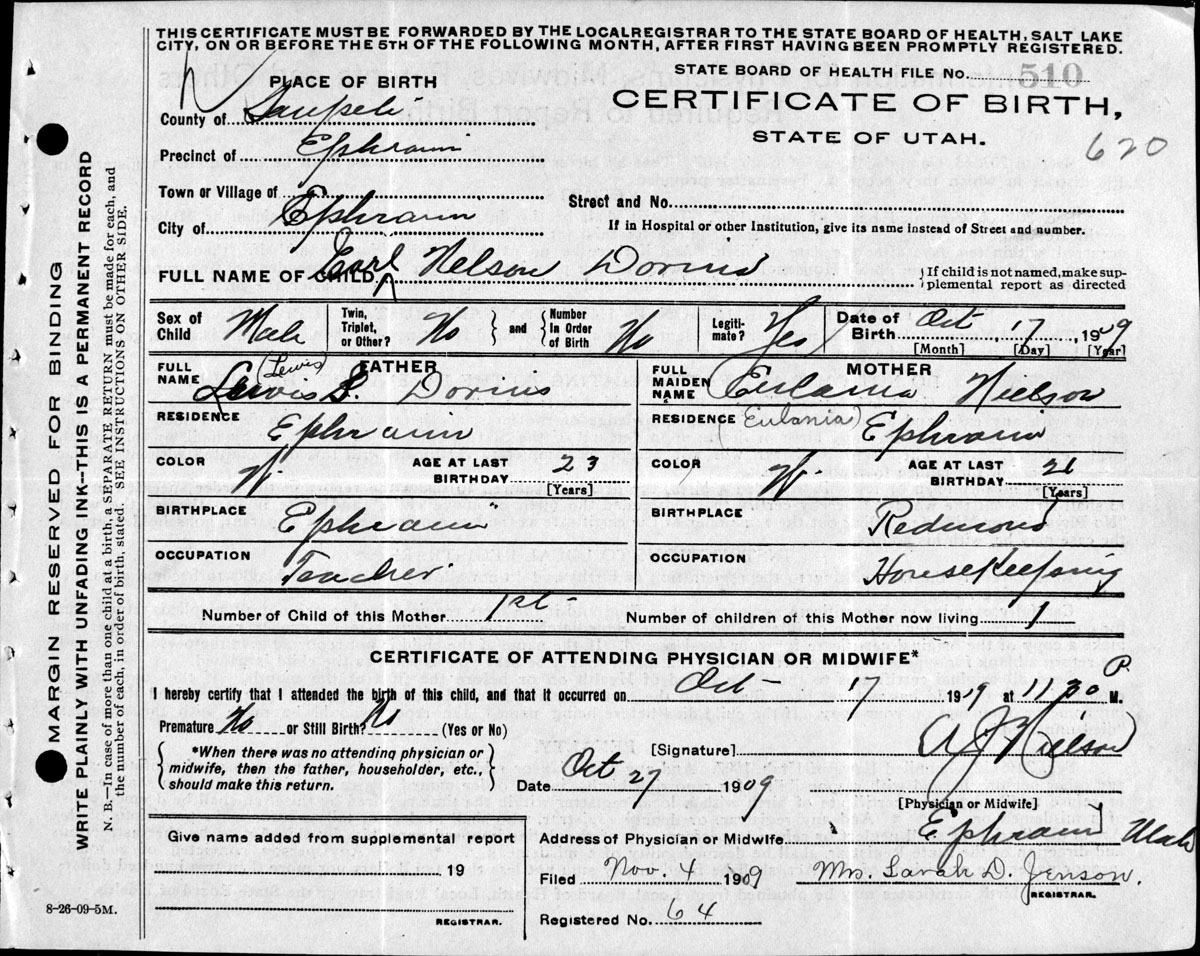 THIS CERTIFICATE MUST BE FORWARDED BY THE LOCAL REGISTRAR TO THE STATE BOARD OF HEALTH, SALT LAKE
CITY, ON OR BEFORE THE 5TH OF THE FOLLOWING MONTH, AFTER FIRST HAVING BEEN PROMPTLY REGISTERED.
PLACE OF BIRTH
STATE BOARD OF HEALTH FILE No. 510
County of Sanpete
CERTIFICATE OF BIRTH,
STATE OF UTAH.
620
Precinct of Ephraim
Town or Village of
Street and No.
City of Ephraim
If in Hospital or other Institution, give its name instead of Street and number.
FULL NAME OF CHILD Earl Nelson Dorius
{If child is not named, make sup-
plemental report as directed
Sex of Child Male
Twin, Triplet, or Other? No
and
Number In Order of Birth No
Legiti-mate? Yes
Date of Birth Oct 17, 1909
[Month] [Day] [Year]
FATHER
FULL NAME Lewis S. Dorius
(Lewis)
RESIDENCE Ephraim
COLOR W.
AGE AT LAST BIRTHDAY 23
[Years]
BIRTHPLACE Ephraim
OCCUPATION Teacher
MOTHER
FULL MAIDEN NAME Eulania Nielson
RESIDENCE (Eulania) Ephraim
COLOR W.
AGE AT LAST BIRTHDAY 21
[Years]
BIRTHPLACE Redmond
OCCUPATION HouseKeeping
Number of Child of this Mother 1st
Number of children of this Mother now living 1
CERTIFICATE OF ATTENDING PHYSICIAN OR MIDWIFE*
I hereby certify that I attended the birth of this child, and that it occurred on Oct 17 1909 at 11.30 P. M.
Premature No or Still Birth? No (Yes or No)
*When there was no attending physician or
midwife, then the father, householder, etc.,
should make this return.
[Signature] A J Nielson
Date Oct 27 1909
[Physician or Midwife]
Give name added from supplemental report
19
REGISTRAR.
Address of Physician or Midwife Ephraim Utah
Filed Nov. 4 1909 Mrs. Sarah D. Jenson.
REGISTRAR.
Registered No. 64
8-26-09-5M.
MARGIN RESERVED FOR BINDING
WRITE PLAINLY WITH UNFADING INK—THIS IS A PERMANENT RECORD
N. B.—In case of more than one child at a birth, a SEPARATE RETURN must be made for each, and
the number of each, in order of birth, stated. SEE INSTRUCTIONS ON OTHER SIDE.